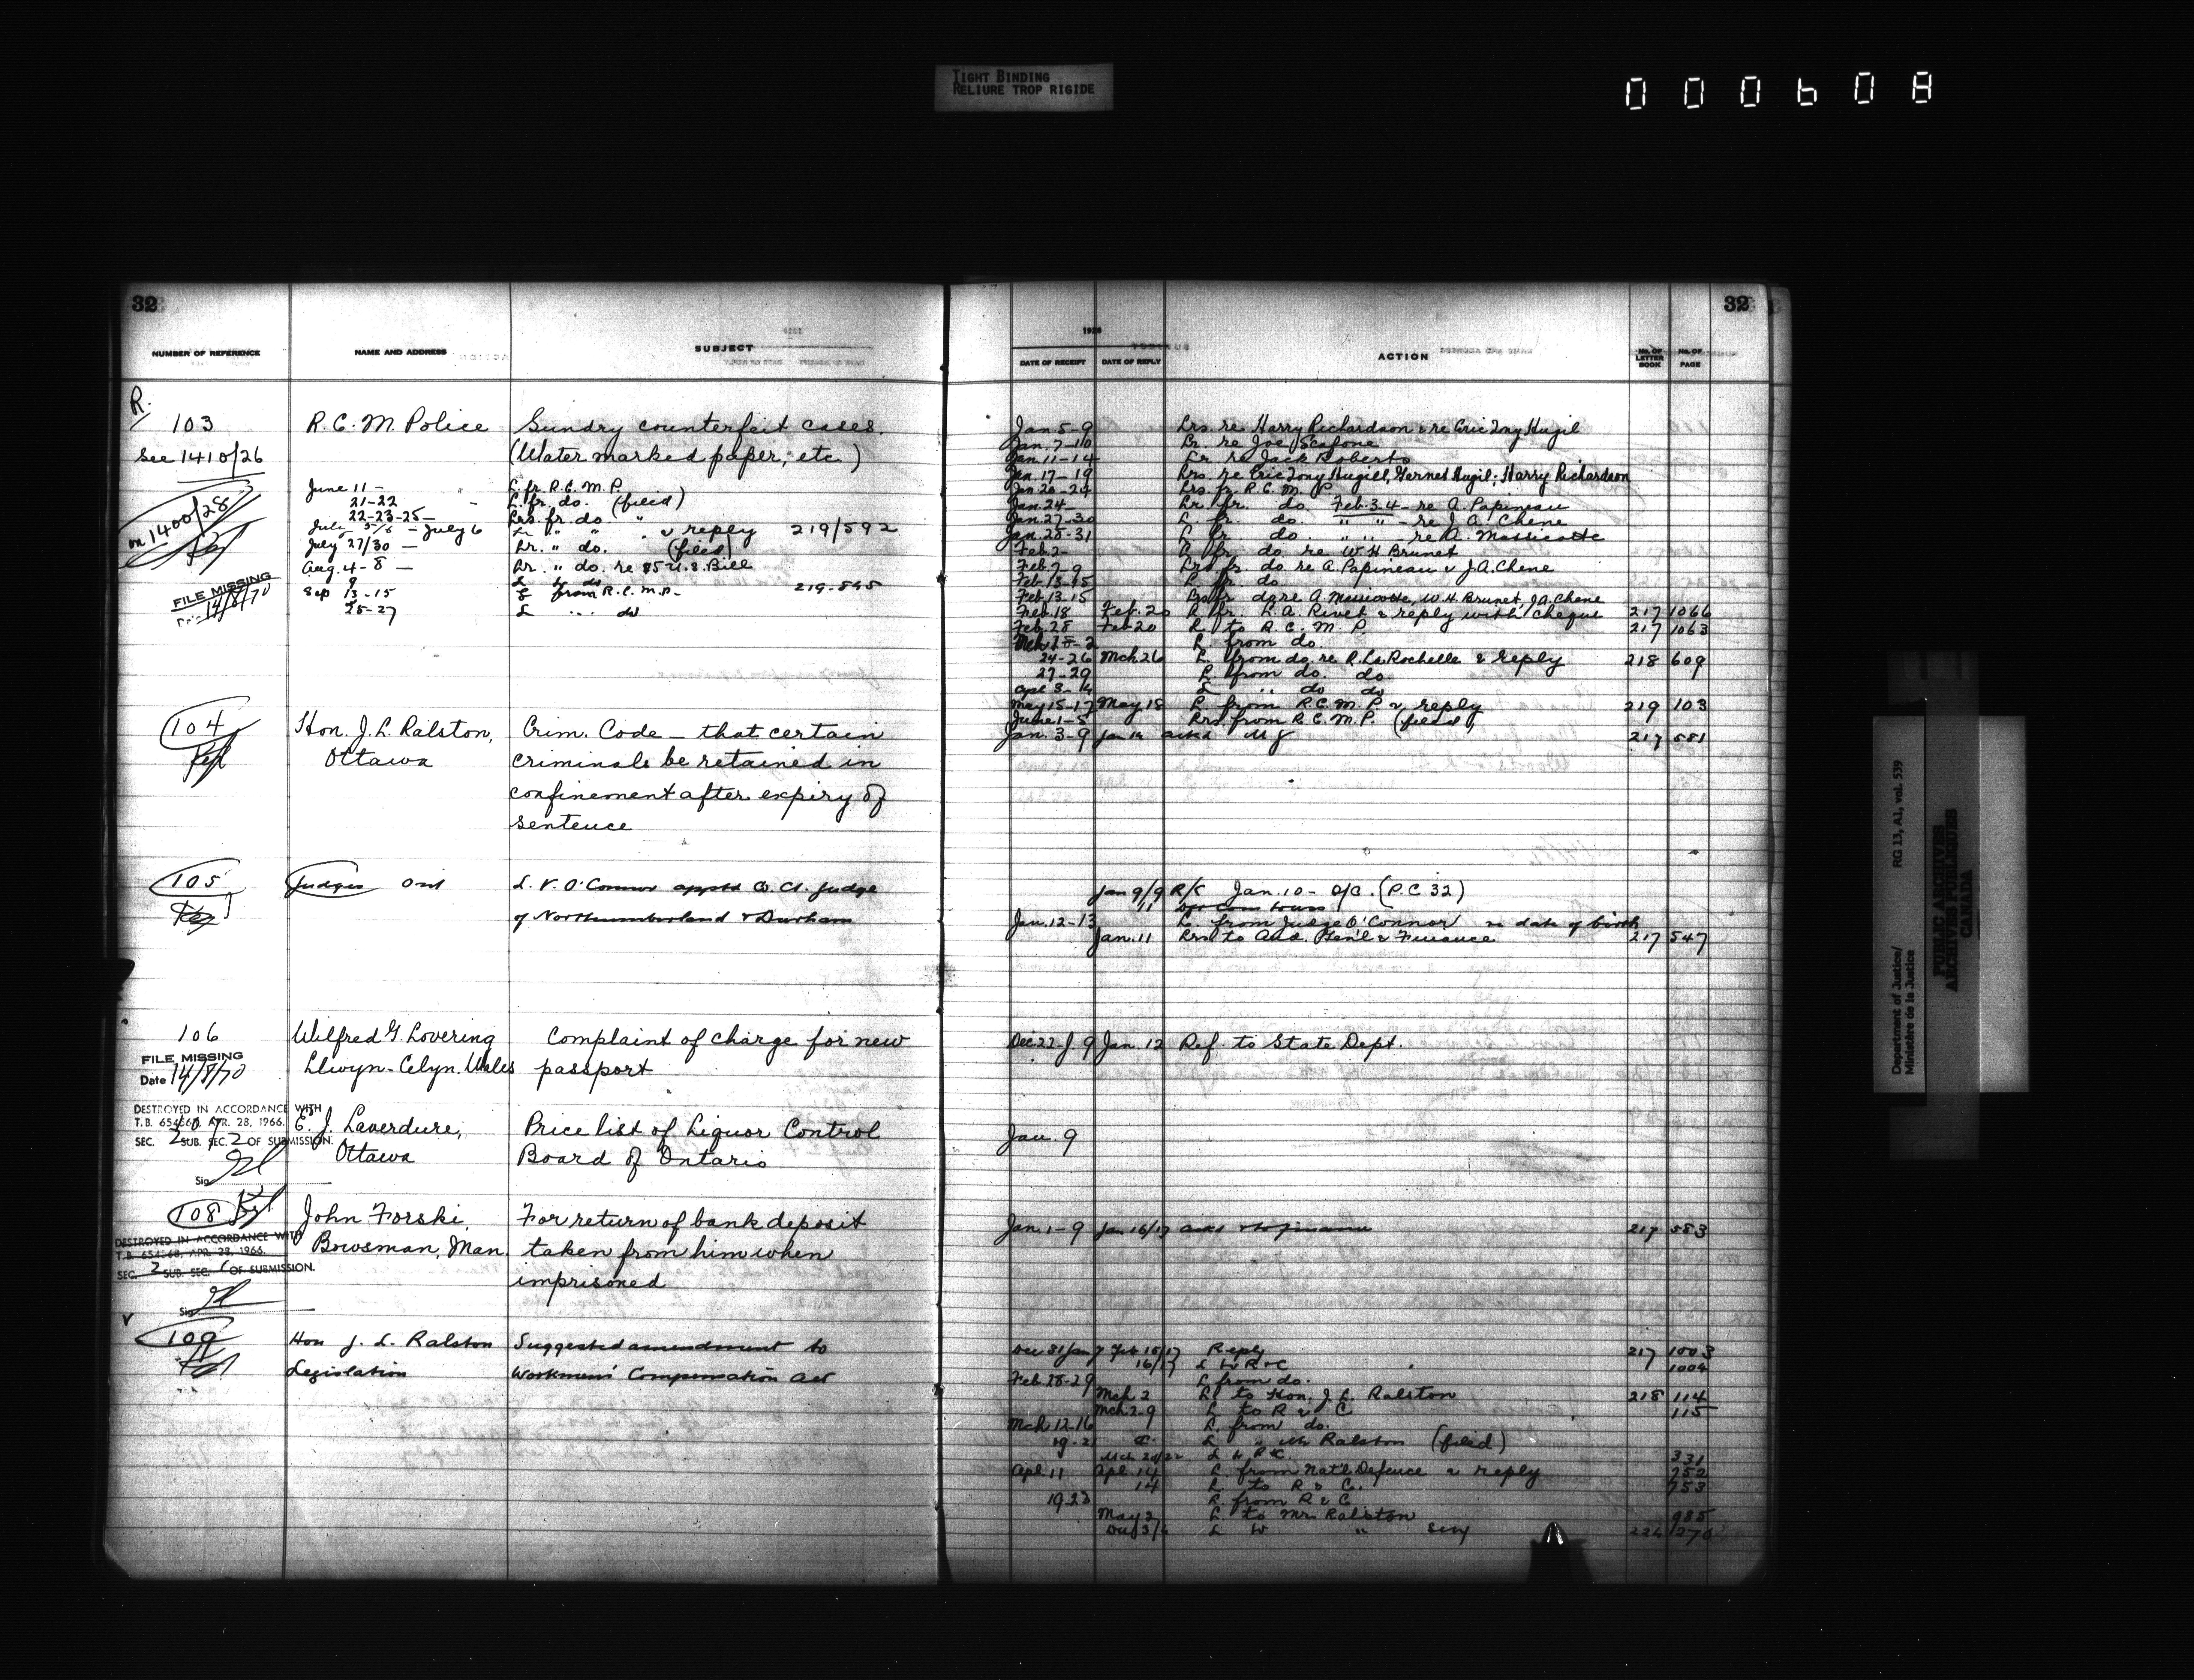 TIGHT BINDING
RELIURE TROP RIGIDE
000608
32
NUMBER OF REFERENCE
NAME AND ADDRESS
SUBJECT
R.
103
R. C. M. Police
Sundry counterfeit cases.
See 1410/26
(Water marked paper, etc.)
June 11 - L. fr R.C.M.P.
21-22 - L. fr. do. (filed)
22-23-25 - Lrs. fr. do. "
on 1400/28
July 5/6 - July 6 Lr " " & reply 219/592
July 27/30 - Lr. " do. (filed)
Aug. 4-8 - Lr. " do. re $5 U.S. Bill
FILE MISSING
14/8/70
Sep 13-15 L from R.C.M.P. 219-845
25-27 L " do
104
Hon. J. L. Ralston,
Ottawa
Crim. Code - that certain
criminals be retained in
confinement after expiry of
sentence
105
Judges Ont
L. V. O'Connor apptd Co. Ct. Judge
of Northumberland & Durham
106
Wilfred G. Lovering
Llwyn-Celyn. Wales
Complaint of charge for new
passport
FILE MISSING
Date 14/8/70
DESTROYED IN ACCORDANCE WITH
T.B. APR. 28, 1966.
SEC. 2 SUB. SEC. 2 OF SUBMISSION.
Sig
E. J. Laverdure,
Ottawa
Price list of Liquor Control
Board of Ontario
108
John Forski,
Bowsman, Man.
For return of bank deposit
taken from him when
imprisoned
DESTROYED IN ACCORDANCE WITH
T.B. 654568, APR. 28, 1966.
SEC. 2 SUB. SEC. 1 OF SUBMISSION.
Sig
109
Hon J. L. Ralston
Legislation
Suggested amendment to
Workmen's Compensation Act
32
1928
DATE OF RECEIPT
DATE OF REPLY
ACTION
No. OF LETTER BOOK
No. OF PAGE
Jan. 5-9 Lrs. re Harry Richardson & re Eric Tony Hugil
Jan. 7-10 Lr. re Joe Scafone
Jan 11-14 Lr re Jack Roberts
Jan. 17-19 Lrs. re Eric Tony Hugill, Garnet Hugil; Harry Richardson
Jan 20-24 Lrs. fr. R. C. M. P
Jan. 24- Lr. fr. do Feb. 3.4 - re A. Papineau
Jan. 27-30 L. fr. do. " " - re J. A. Chene
Jan. 28-31 L. fr. do. " " re A. Massicotte
Feb. 2- L. fr. do. re W. H. Brunet
Feb. 7-9 Lrs. fr. do re A. Papineau & J.A. Chene
Feb. 13-15 L. fr. do
Feb. 13-15 fr do re A. Massicotte, W.H. Brunet, J.A. Chene
Feb. 18 Feb. 20 L. fr. L. A. Rivet & reply with cheque 217 1066
Feb. 28 Feb 20 L. to R. C. M. P. 217 1063
L. from do.
24-26 Mch 26 L. from do. re R. La Rochelle & reply 218 609
27-29 L. from do. do.
Apl 3-14 L " do do
May 15-17 May 18 L. from R.C.M.P. & reply 219 103
June 1-5 Lrs. from R.C.M.P. (filed)
Jan. 3-9 Jan 14 ackd MJ 217 581
Jan 9/9 R/C Jan. 10 - O/C. (P.C 32)
11
Jan. 12-13 L. from Judge O'Connor re date of birth
Jan. 11 Lrs. to Aud. Gen'l & Finance 217 547
Dec. 22-J 9 Jan. 12 Ref. to State Dept.
Jan. 9
Jan. 1-9 Jan 16/17 ackd 217 583
Dec 31/Jan 7 Feb 15/17 Reply 217 1003
16/17 L to R & C 1004
Feb. 28-29 L from do.
Mch 2 L. to Hon. J. L. Ralston 218 114
Mch. 2-9 L. to R & C 115
Mch 12-16 L. from do.
19-21 L. " Mr Ralston (filed)
Mch 20/22 L to R & C 331
Apl. 11 Apl. 14 L. from Nat'l Defence & reply 752
14 L. to R & C. 753
19-23 L. from R & C
May 2 L. to Mr. Ralston 985
Dec 3/4 L to " Secy 224 270
Department of Justice/
Ministère de la Justice
RG 13, A1, vol. 539
PUBLIC ARCHIVES
ARCHIVES PUBLIQUES
CANADA